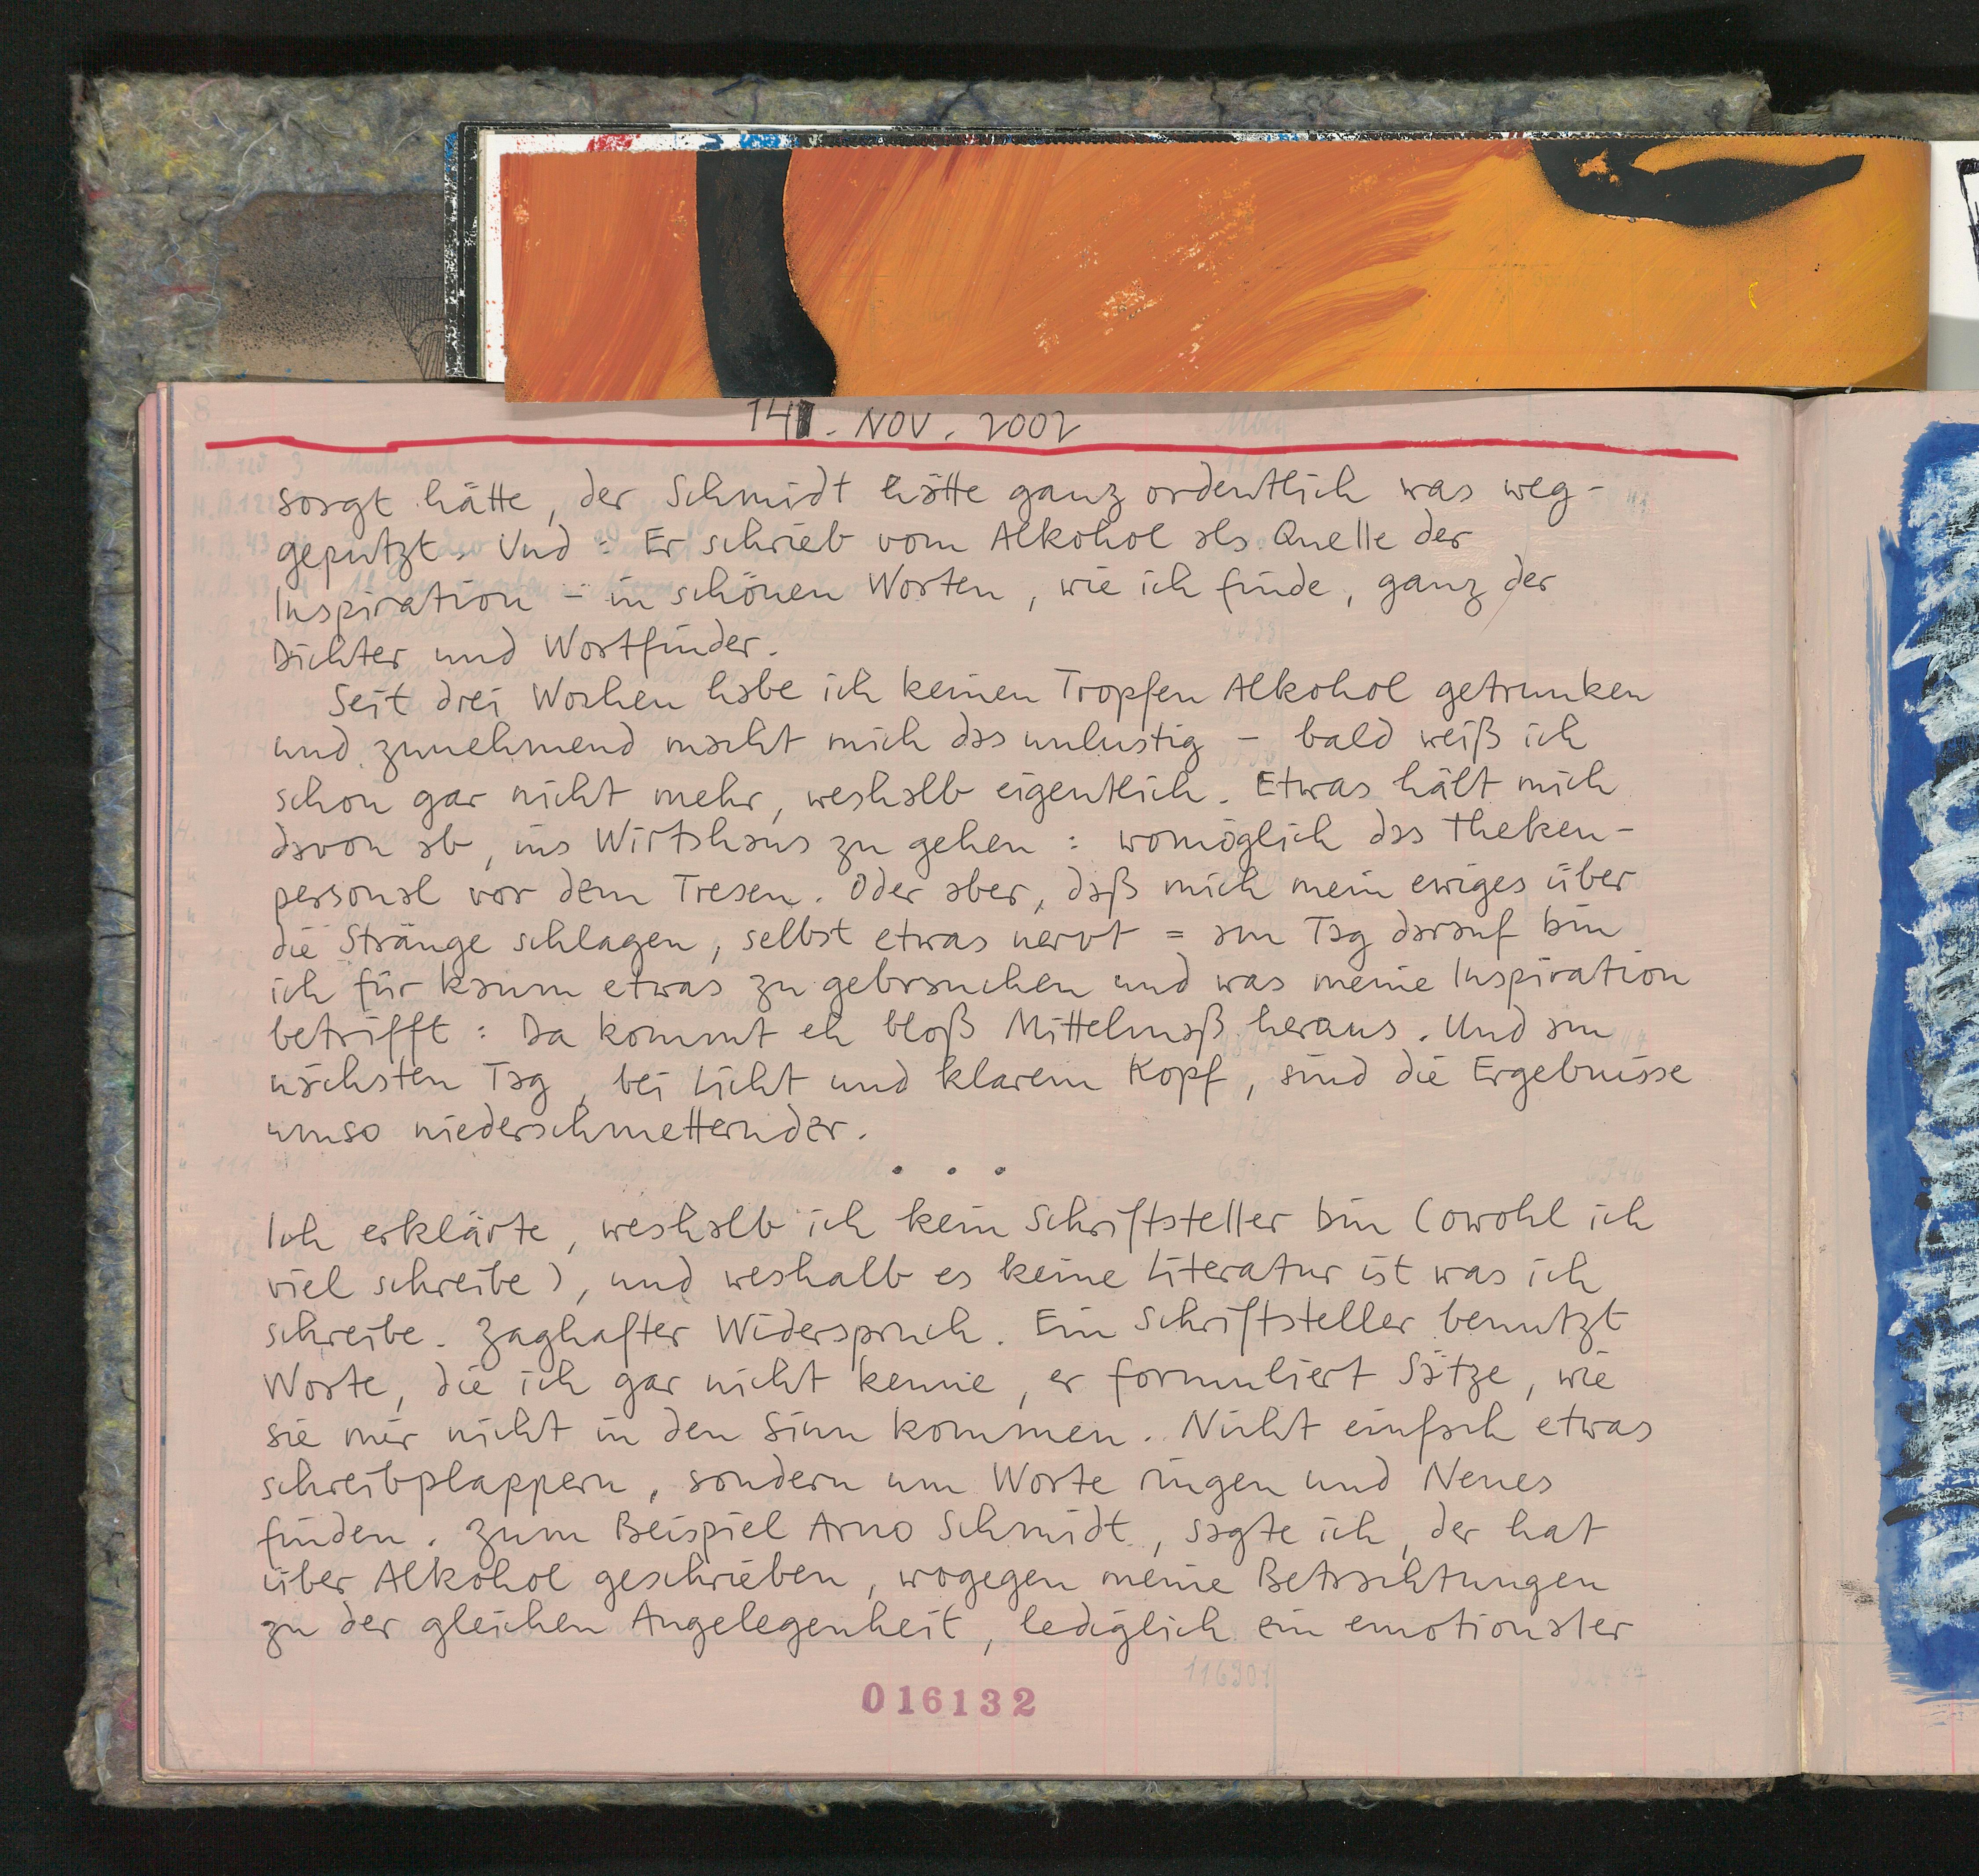 14. NOV. 2002
sorgt hätte, der Schmidt hätte ganz ordentlich was weg-
geputzt. Und: Er schrieb vom Alkohol als Quelle der
Inspiration – in schönen Worten, wie ich finde, ganz der
Dichter und Wortfinder.
Seit drei Wochen habe ich keinen Tropfen Alkohol getrunken
und zunehmend macht mich das unlustig – bald weiß ich
schon gar nicht mehr, weshalb eigentlich. Etwas hält mich
davon ab, ins Wirtshaus zu gehen: womöglich das Theken-
personal vor dem Tresen. Oder aber, daß mich mein ewiges über
die Stränge schlagen, selbst etwas nervt = am Tag darauf bin
ich für kaum etwas zu gebrauchen und was meine Inspiration
betrifft: Da kommt eh bloß Mittelmaß heraus. Und am
nächsten Tag, bei Licht und klarem Kopf, sind die Ergebnisse
umso niederschmetternder.
. . .
Ich erklärte, weshalb ich kein Schriftsteller bin (owohl ich
viel schreibe), und weshalb es keine Literatur ist was ich
schreibe. Zaghafter Widerspruch. Ein Schriftsteller benutzt
Worte, die ich gar nicht kenne, er formuliert Sätze, wie
sie mir nicht in den Sinn kommen. Nicht einfach etwas
schreibplappern, sondern um Worte ringen und Neues
finden. Zum Beispiel Arno Schmidt, sagte ich, der hat
über Alkohol geschrieben, wogegen meine Betrachtungen
zu der gleichen Angelegenheit, lediglich ein emotionaler
016132
116301